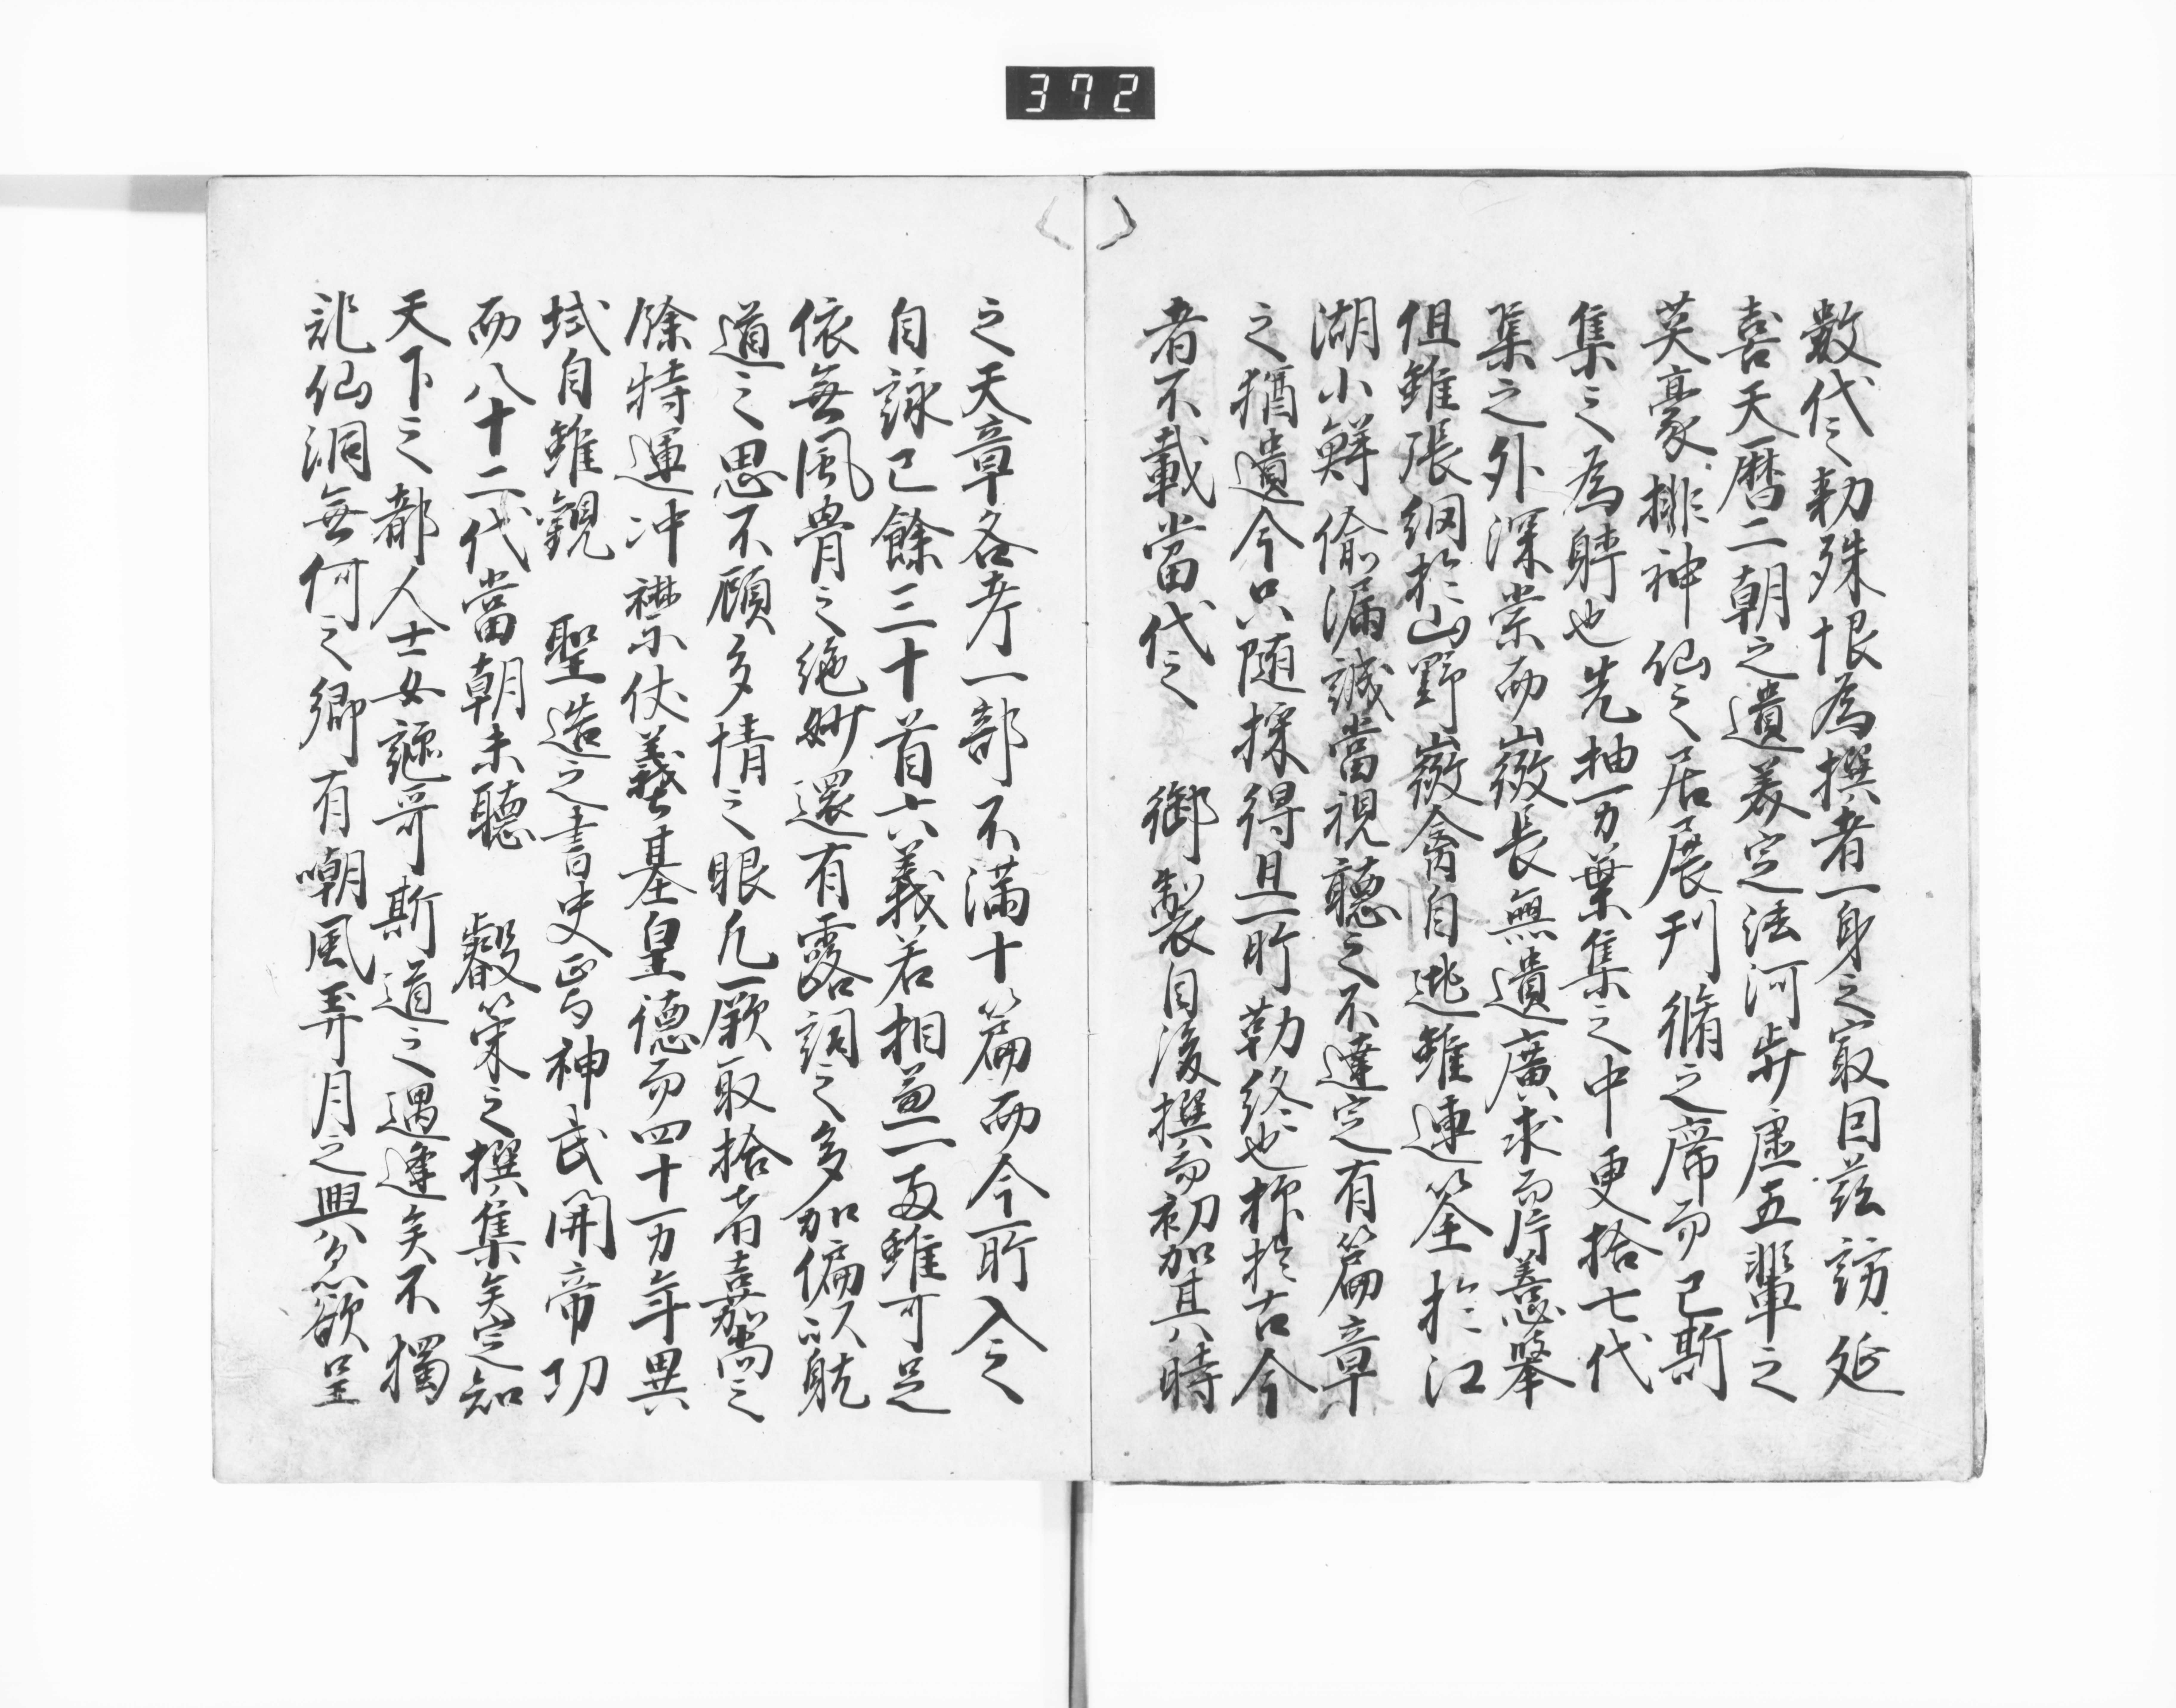 372
數代之勅殊恨為撰者一身之㝡因茲訪延
喜天曆二朝之遺美定法河步虛五輩之
英豪排神仙之居展刊脩之席而已斯
集之為躰也先抽万葉集之中更拾七代
集之外深索而微長無遺廣求而片善必舉
但雖張網於山野微禽自逃雖連筌於江
湖小鮮偷漏誠當視聽之不達定有篇章
之猶遺今只隨採得且所勒終也抑於古今
者不載當代之　御製自後撰而初加其時
之天章各考一部不滿十篇而今所入之
自詠已餘三十首六義若相兼一兩雖可足
依無風骨之絕妙還有露詞之多加偏以躭
道之思不顧多情之眼凡厥取捨者嘉尚之
餘特運冲襟伏羲基皇德而四十万年異
域自雖觀　聖造之書史焉神武開帝功
而八十二代當朝未聽　叡策之撰集矣定知
天下之都人士女謳哥斯道之遇逢矣不獨
記仙洞無何之鄉有嘲風弄月之興忽欲呈